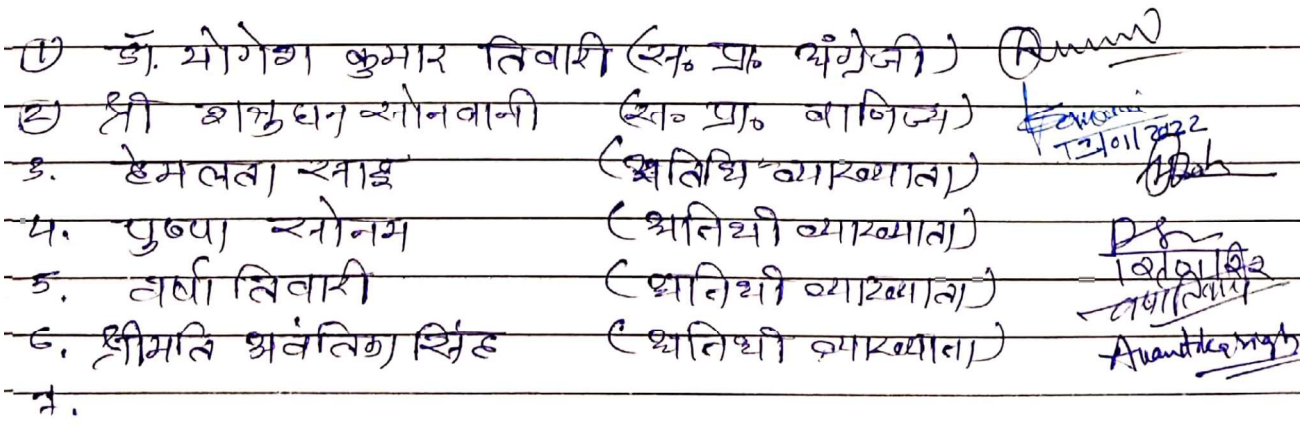 ① डॉ. योगेश कुमार तिवारी (स॰ प्रा॰ अंग्रेजी)
② श्री शत्रुघन सोनवानी (स॰ प्रा॰ वाणिज्य)
12/01/2022
3. हेमलता साई (अतिथि व्याख्याता)
4. पुष्पा सोनम (अतिथी व्याख्याता)
5. वर्षा तिवारी (अतिथी व्याख्याता)
वर्षा तिवारी
6. श्रीमति अवंतिका सिंह (अतिथी व्याख्याता) Avantika singh
7.